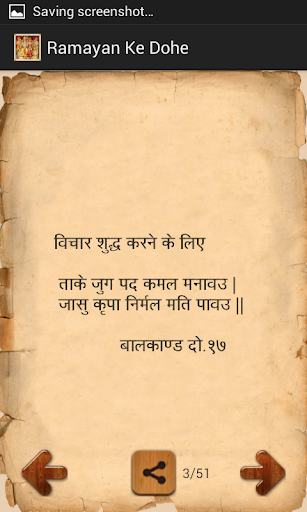 Saving screenshot...
Ramayan Ke Dohe
विचार शुद्ध करने के लिए
ताके जुग पद कमल मनावउ |
जासु कृपा निर्मल मति पावउ ||
बालकाण्ड दो.१७
3/51